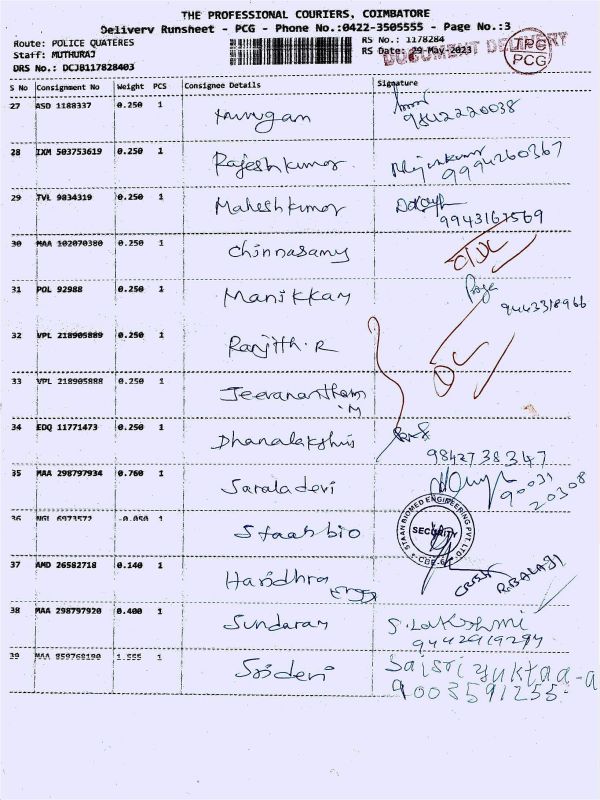 THE PROFESSIONAL COURIERS, COIMBATORE
Delivery Runsheet - PCG - Phone No.:0422-3505555 - Page No.:3
Route: POLICE QUATERES
RS No.: 1178284
Staff: MUTHURAJ
RS Date: 29-May-2023
DOCUMENT DELIVERY
TPC
PCG
DRS No.: DCJB117828403
S No Consignment No Weight PCS Consignee Details Signature
27 ASD 1188337 0.250 1 Murugan
9842220038
28 IXM 503753619 0.250 1 Rajeshkumar
9994260367
29 TVL 9834319 0.250 1 Maheshkumar
9943167569
30 MAA 102070380 0.250 1 Chinnasamy
31 POL 92988 0.250 1 Manikkam
9443318966
32 VPL 218905889 0.250 1 Ranjith.R
DC
33 VPL 218905888 0.250 1 Jeevanantham
.M
34 EDQ 11771473 0.250 1 Dhanalakshmi
9842738347
35 MAA 298797934 0.760 1 Saraladevi
90031
20308
36 NGL 6973572 0.050 1 Staanbio
STAAN BIOMED ENGINEERING PVT LTD
SECURITY
CBE-6
37 AMD 26582718 0.140 1 Haridhra
R.BALAJI
38 MAA 298797920 0.400 1 Sundaram S.Lakshmi
9442919294
39 MAA 859768190 1.555 1 Sridevi Saisri yuktaa-a
9003591255-